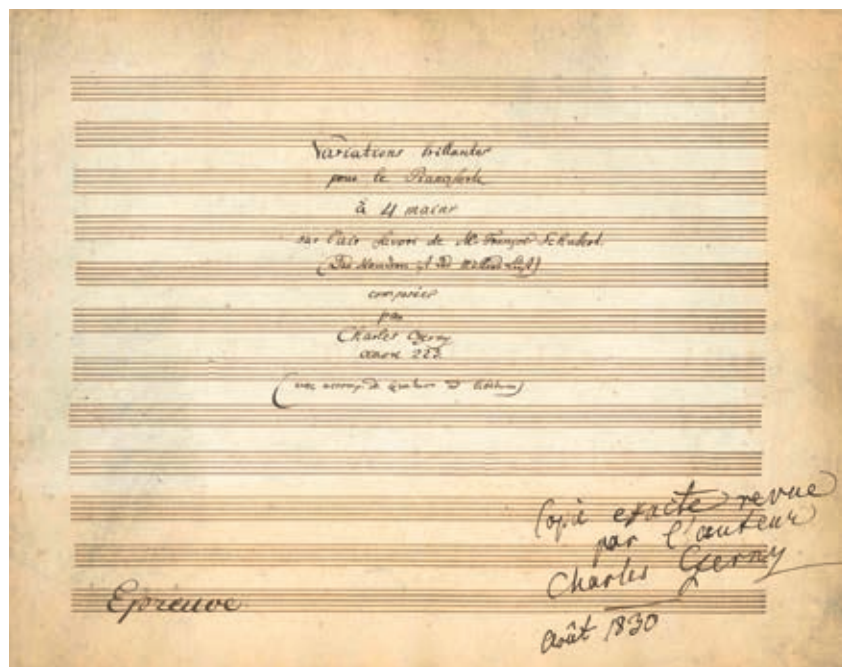 Variations brillantes
pour le Pianoforte
à 4 mains
sur l'air favori de Mr. François Schubert.
(Das Wandern ist des Müllers Lust)
composées
par
Charles Czerny
œuvre 223.
(avec accomp. de
Copie exacte revue
par l'auteur
Charles Czerny
Août 1830
Epreuve.